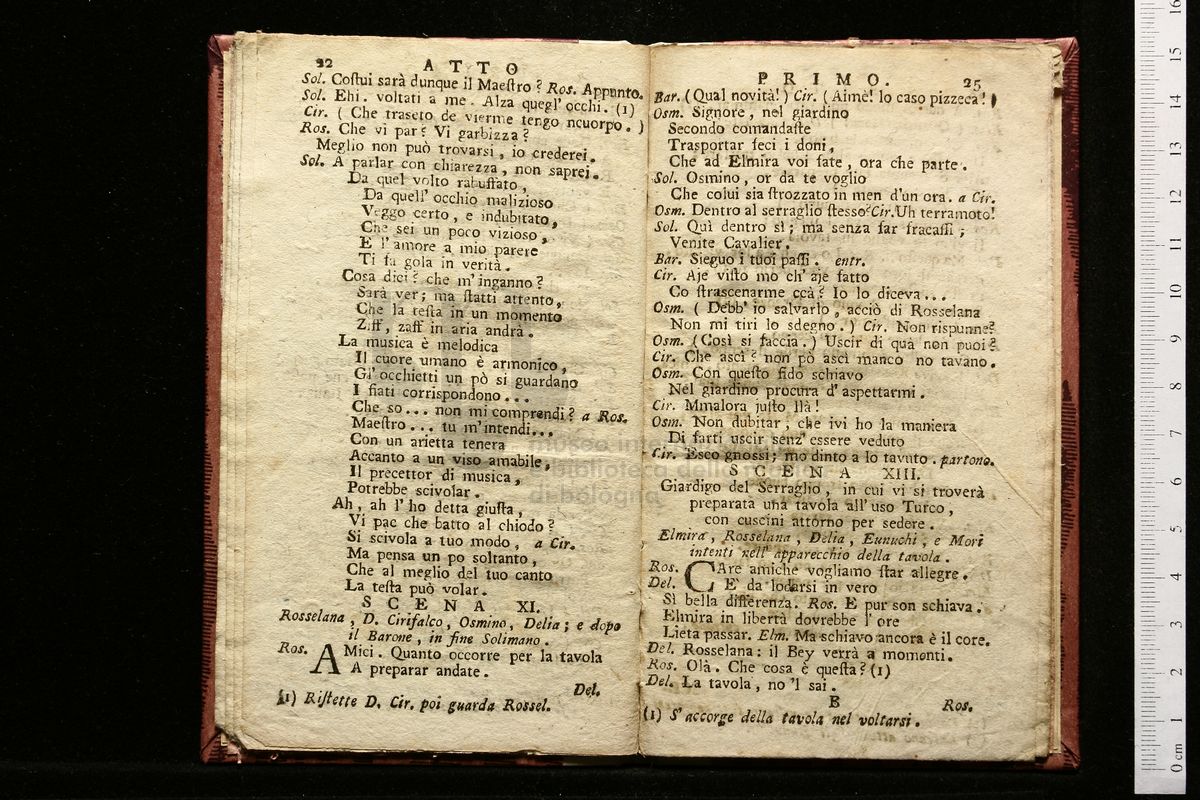 22 ATTO
Sol. Coſtui sarà dunque il Maeſtro? Ros. Appunto.
Sol. Ehi. voltati a me. Alza quegl' occhi. (1)
Cir. ( Che traseto de vierme tengo ncuorpo. )
Ros. Che vi par? Vi garbizza?
Meglio non può trovarsi, io crederei.
Sol. A parlar con chiarezza, non saprei.
Da quel volto rabuffato,
Da quell' occhio malizioso
Veggo certo, e indubitato,
Che sei un poco vizioso,
E l'amore a mio parere
Ti fa gola in verità.
Cosa dici? che m'inganno?
Sarà ver; ma ſtatti attento,
Che la teſta in un momento
Ziff, zaff in aria andrà.
La musica è melodica
Il cuore umano è armonico,
Gl' occhietti un pò si guardano
I fiati corrispondono...
Che so... non mi comprendi? a Ros.
Maeſtro... tu m'intendi...
Con un arietta tenera
Accanto a un viso amabile,
Il precettor di musica,
Potrebbe scivolar.
Ah, ah l' ho detta giuſta,
Vi pac che batto al chiodo?
Si scivola a tuo modo, a Cir.
Ma pensa un po soltanto,
Che al meglio del tuo canto
La teſta può volar.
SCENA XI.
Rosselana, D. Cirifalco, Osmino, Delia; e dopo
il Barone, in fine Solimano.
Ros. AMici. Quanto occorre per la tavola
A preparar andate.
Del.
(1) Riſtette D. Cir. poi guarda Rossel.
PRIMO. 25
Bar. (Qual novità!) Cir. (Aimè! lo caso pizzeca!)
Osm. Signore, nel giardino
Secondo comandaſte
Trasportar feci i doni,
Che ad Elmira voi fate, ora che parte.
Sol. Osmino, or da te voglio
Che colui sia ſtrozzato in men d'un ora. a Cir.
Osm. Dentro al serraglio ſtesso? Cir. Uh terramoto!
Sol. Quì dentro sì; ma senza far fracaſſi;
Venite Cavalier.
Bar. Sieguo i tuoi paſſi. entr.
Cir. Aje viſto mo ch' aje fatto
Co ſtrascenarme ccà? Io lo diceva...
Osm. ( Debb' io salvarlo, acciò di Rosselana
Non mi tiri lo sdegno. ) Cir. Non rispunne?
Osm. (Così si faccia.) Uscir di quà non puoi?
Cir. Che ascì? non pò ascì manco no tavano.
Osm. Con queſto fido schiavo
Nel giardino procura d' aspettarmi.
Cir. Mmalora juſto llà!
Osm. Non dubitar, che ivi ho la maniera
Di farti uscir senz' essere veduto
Cir. Esco gnossì; mo dinto a lo tavuto. partono.
SCENA XIII.
Giardigo del Serraglio, in cui vi si troverà
preparata una tavola all' uso Turco,
con cuscini attorno per sedere.
Elmira, Rosselana, Delia, Eunuchi, e Mori
intenti nell' apparecchio della tavola.
Ros. CAre amiche vogliamo ſtar allegre.
Del. E' da lodarsi in vero
Sì bella differenza. Ros. E pur son schiava.
Elmira in libertà dovrebbe l' ore
Lieta passar. Elm. Ma schiavo ancora è il core.
Del. Rosselana: il Bey verrà a momenti.
Ros. Olà. Che cosa è queſta? (1)
Del. La tavola, no 'l sai.
B Ros.
(1) S'accorge della tavola nel voltarsi.